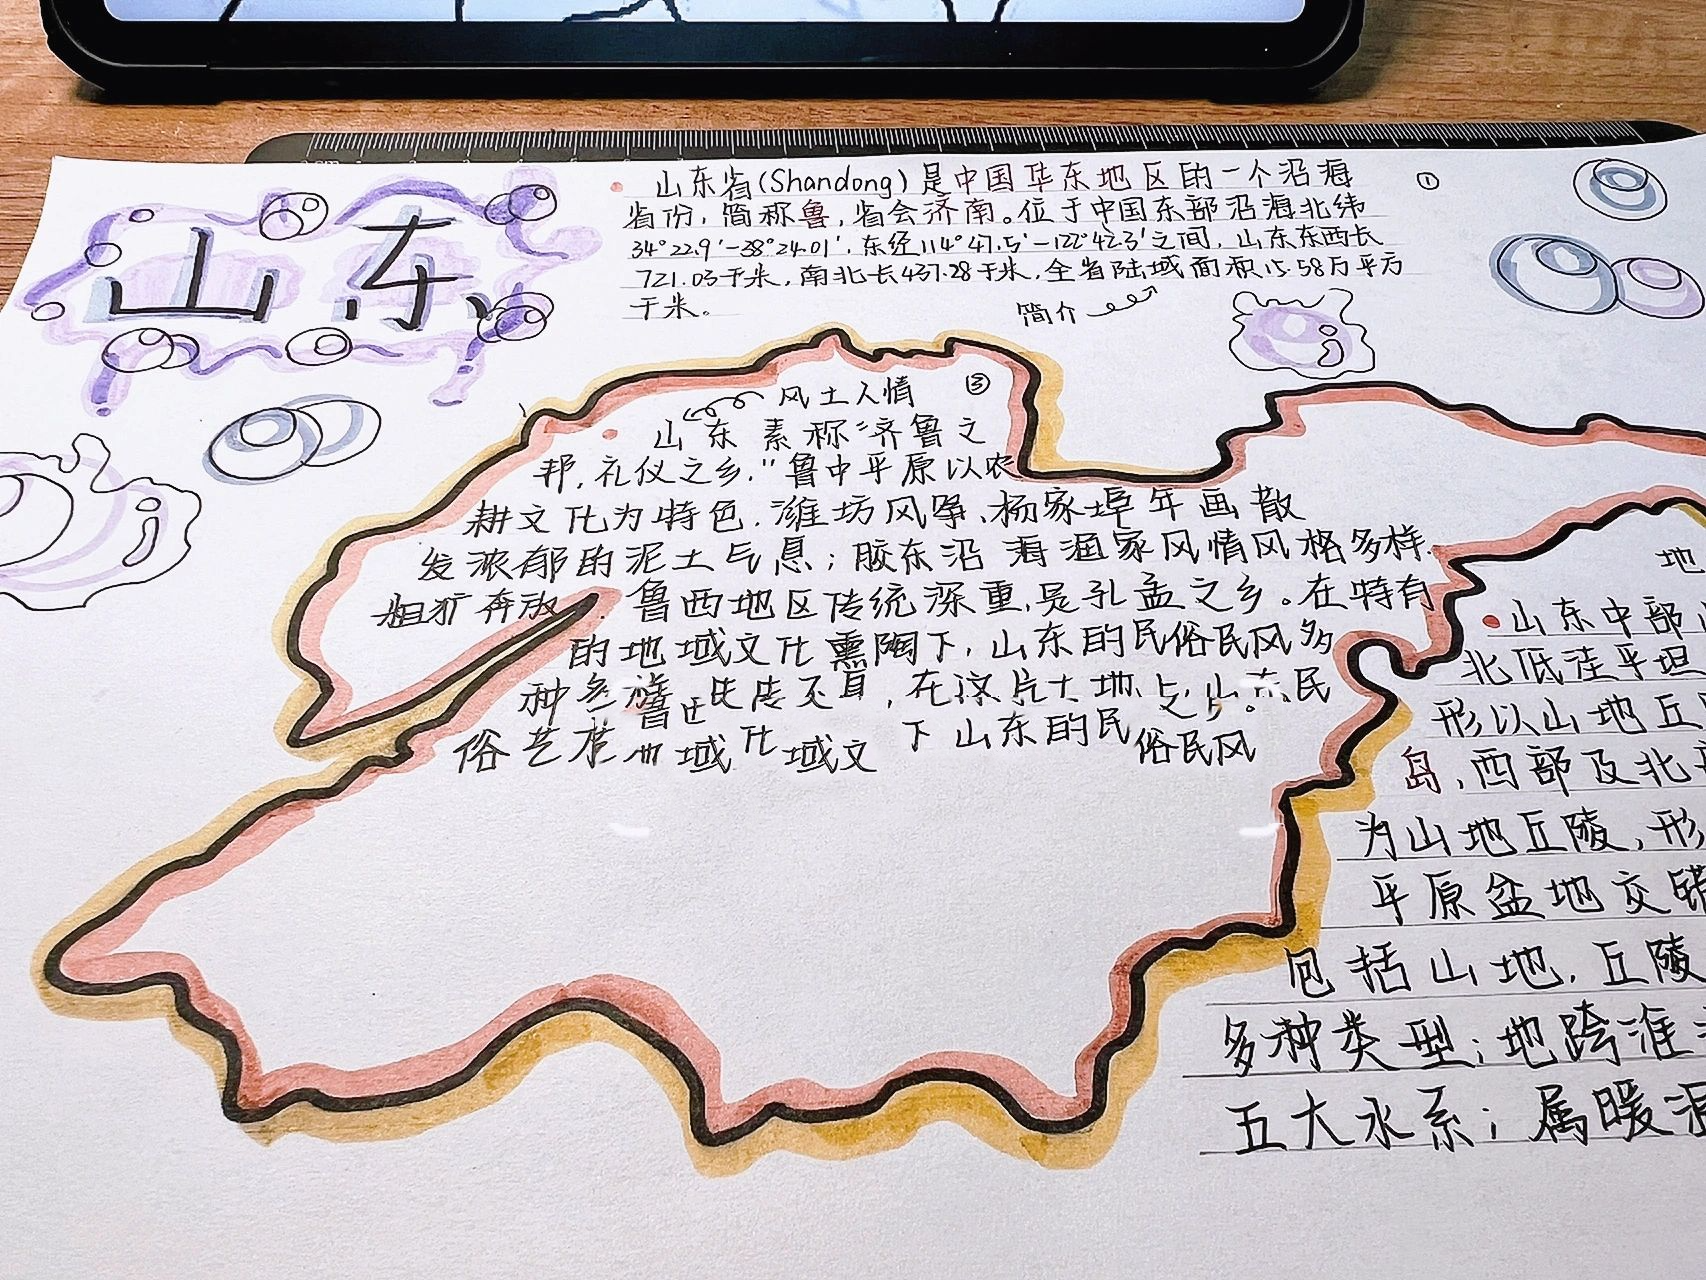 山东
山东省(Shandong)是中国华东地区的一个沿海
①
省份,简称鲁,省会济南。位于中国东部沿海北纬
34°22.9′-38°24.01′,东经114°47.5′-122°42.3′之间,山东东西长
721.03千米,南北长437.28千米,全省陆域面积15.58万平方
千米。
简介
风土人情
③
山东素称“齐鲁之
邦,礼仪之乡."鲁中平原以农
耕文化为特色,潍坊风筝、杨家埠年画散
发浓郁的泥土气息;胶东沿海渔家风情风格多样.
粗犷奔放.鲁西地区传统深重,是孔孟之乡。在特有
的地域文化熏陶下,山东的民俗民风多
种多
在这片土地上,山东民
俗艺
域化域文
下山东的民俗民风
地
山东中部
北低洼平坦
形以山地丘
岛,西部及北
为山地丘陵,形
平原盆地交错
包括山地,丘陵
多种类型;地跨淮
五大水系;属暖温